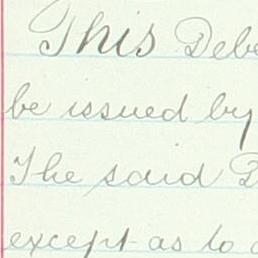 This Debe
be issued by
The said D
except as to